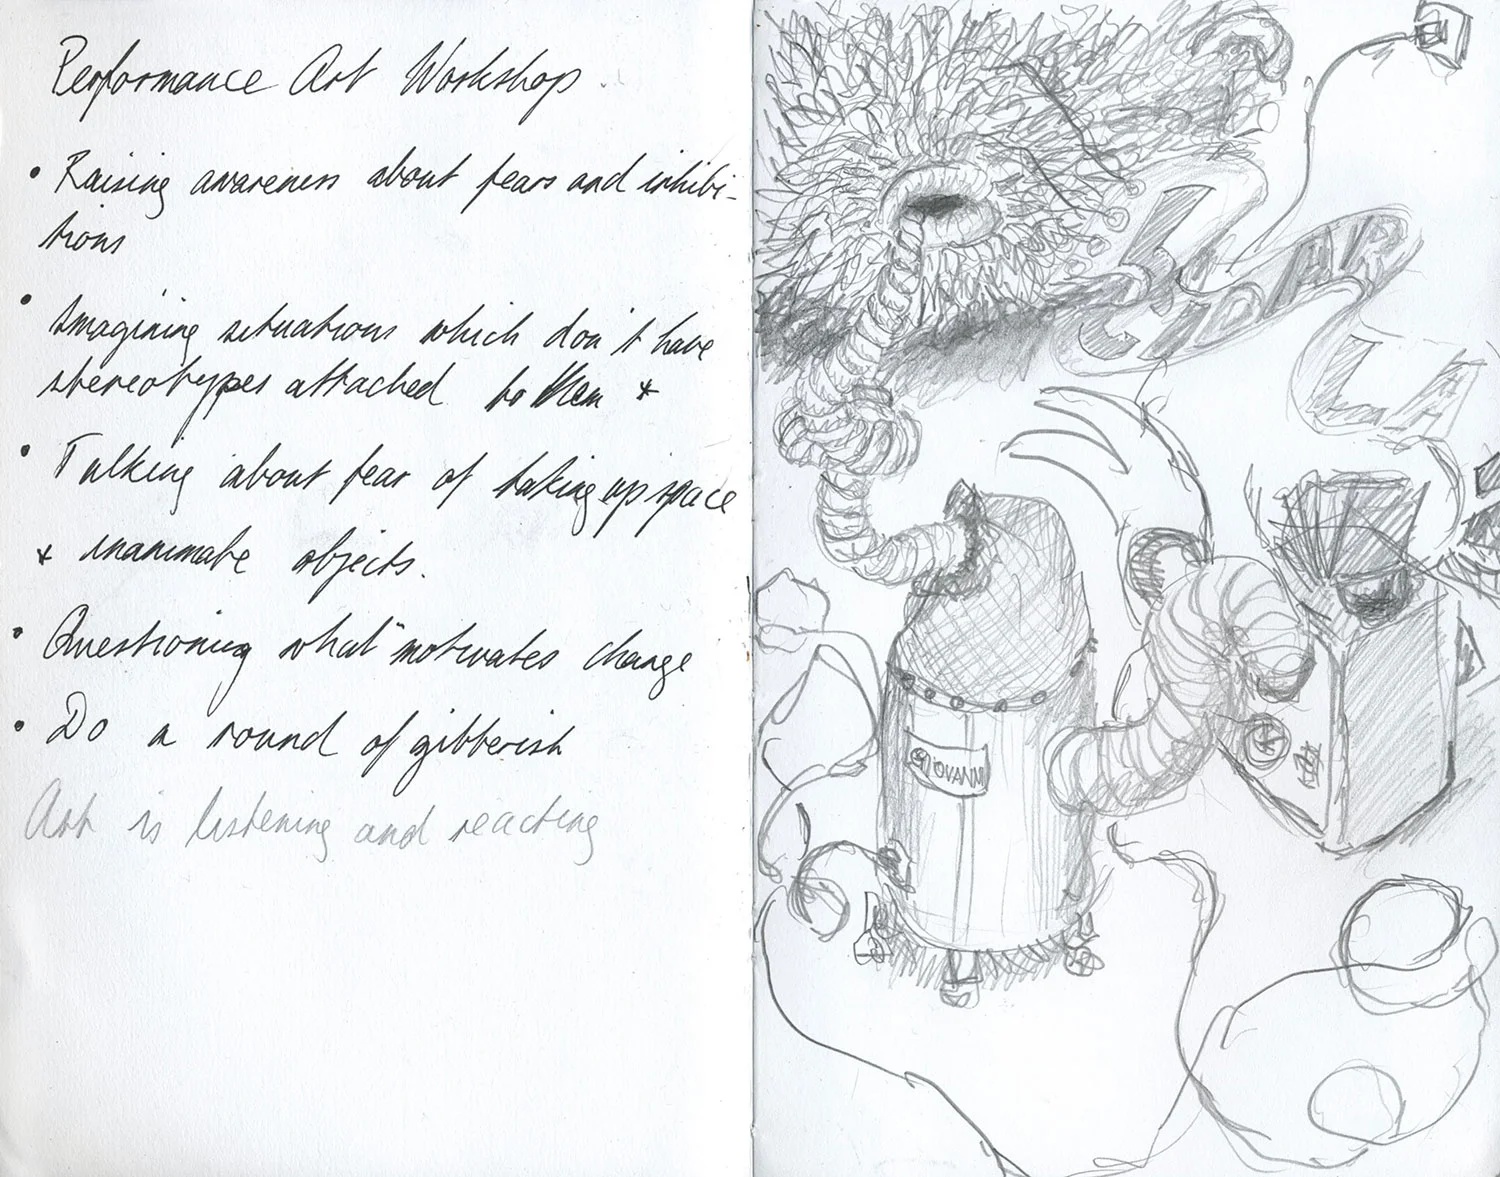 Performance Art Workshop
• Raising awareness about fears and inhibi-
tions
• Imagining situations which don't have
stereotypes attached to them *
• Talking about fear of taking up space
* inanimate objects.
• Questioning what motivates change
• Do a round of gibberish
Art is listening and reacting
GIOVANNI